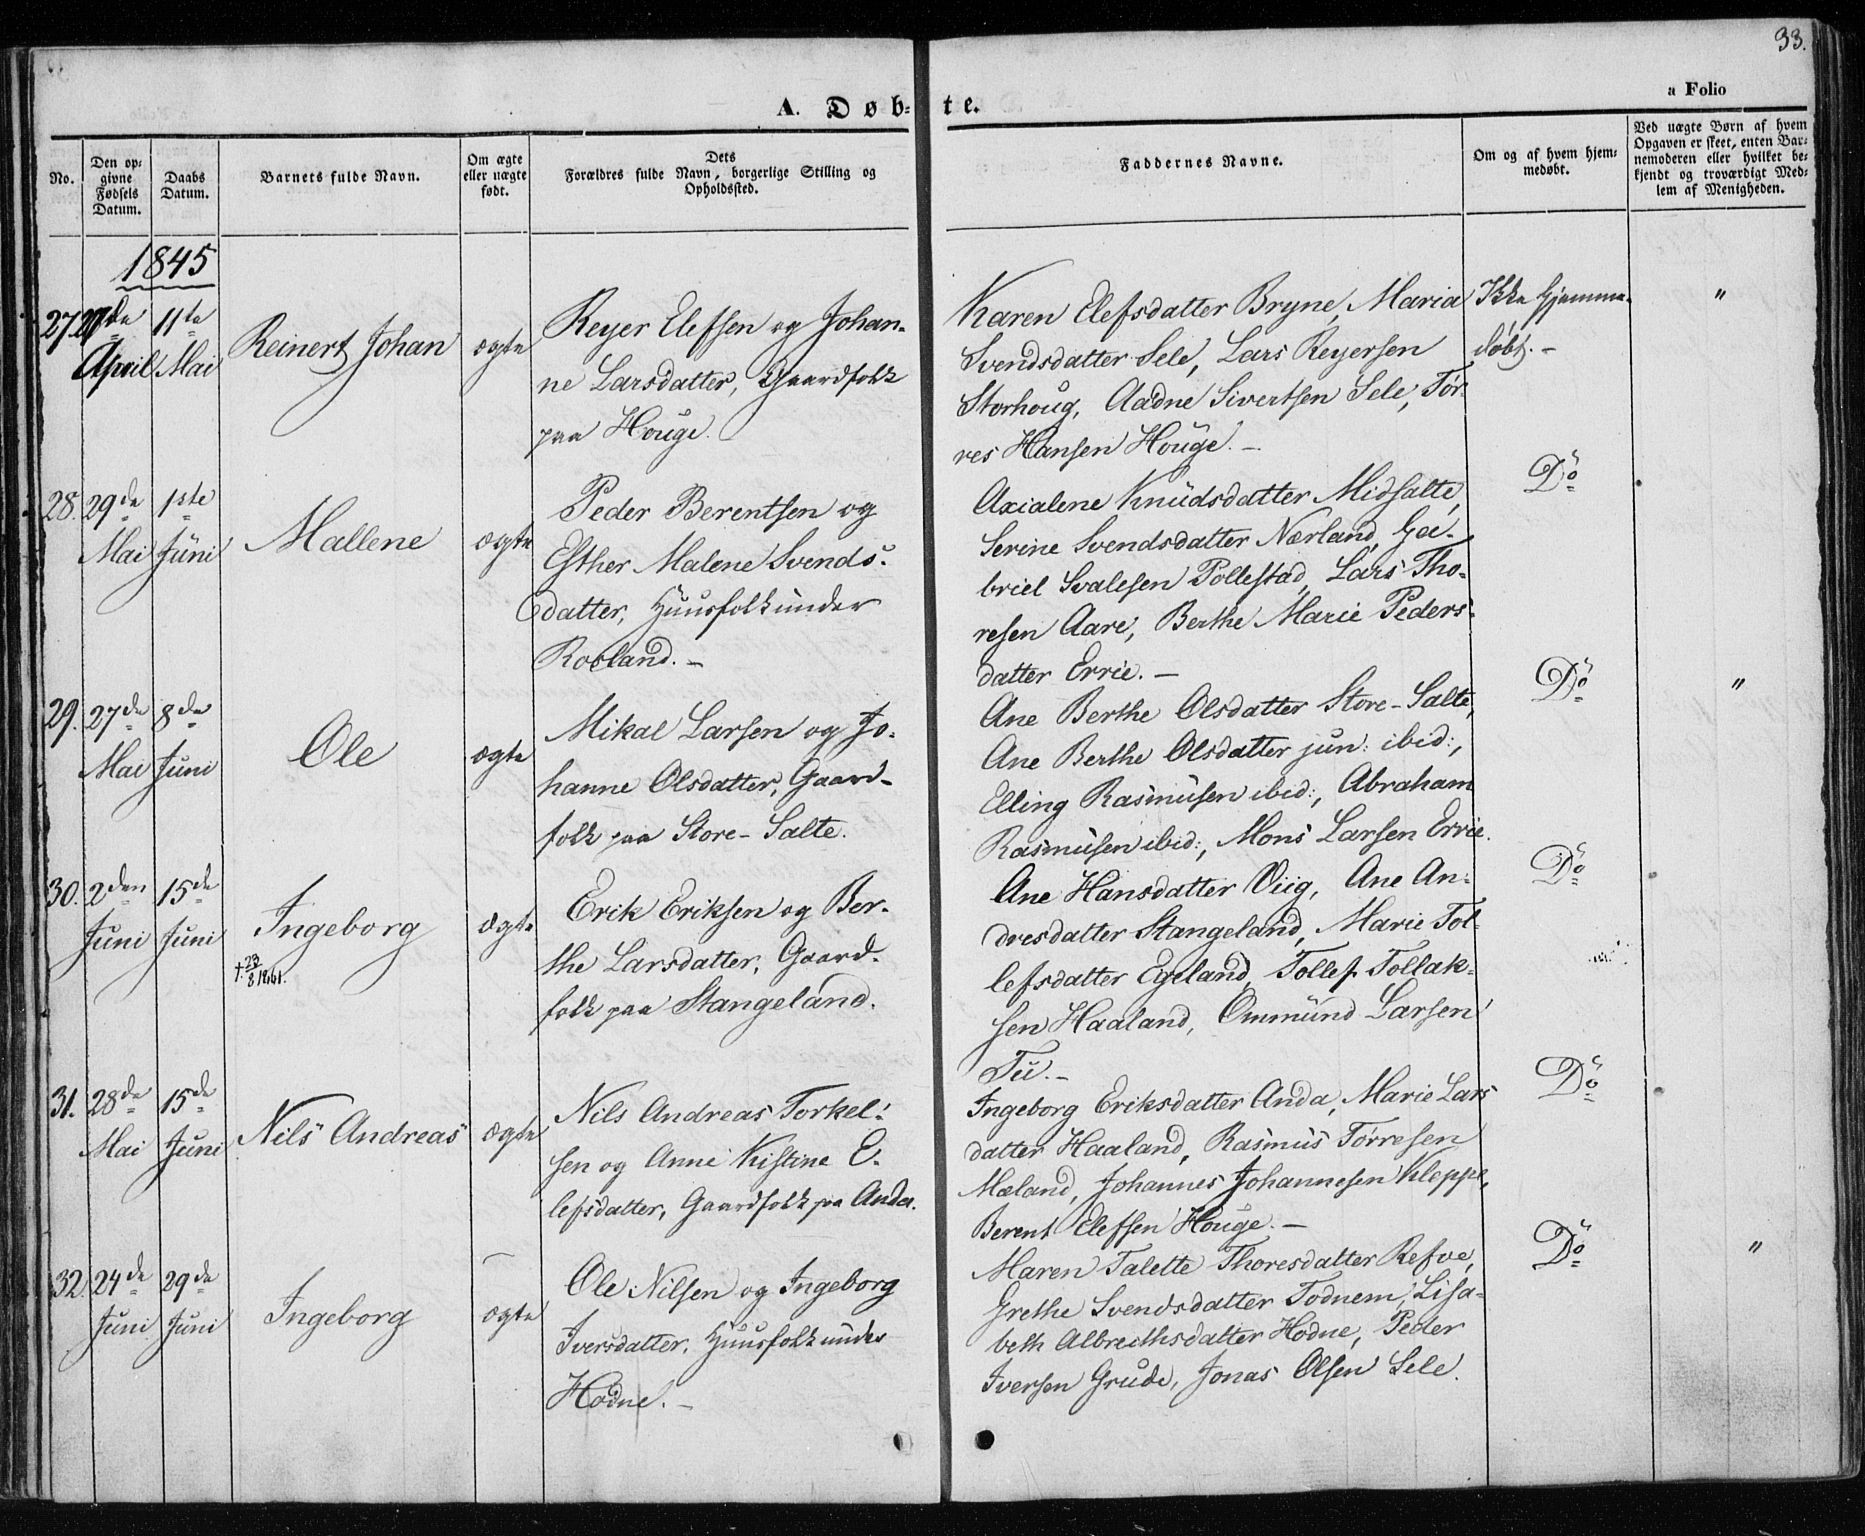 33.
a Folio
A. Døb-te.
No.
Den op-
givne
Fødsels
Datum.
Daabs
Datum.
Barnets fulde Navn.
Om ægte
eller uægte
født.
Dets
Forældres fulde Navn, borgerlige Stilling og
Opholdssted.
Faddernes Navne.
Om og af hvem hjem-
medøbt.
Ved uægte Børn af hvem
Opgaven er skeet, enten Bar-
nemoderen eller hvilket be-
kjendt og troværdigt Med-
lem af Menigheden.
1845
27. 27de April
11te Mai
Reinert Johan
ægte
Reyer Elefsen og Johan-
ne Larsdatter, Gaardfolk
paa Houge.
Karen Elefsdatter Bryne, Maria
Svendsdatter Sele, Lars Reyersen
Storhoug, Aadne Sivertsen Sele, Tør-
res Hansen Houge. -
Ikke hjemme-
døbt. -
"
28. 29de Mai
1ste Juni
Mallene
ægte
Peder Berentsen og
Esther Malene Svends-
datter, Huusfolk under
Roeland. -
Axialene Knudsdatter Midsalte,
Serine Svendsdatter Nærland, Ga-
briel Svalesen Pollestad, Lars Tho-
resen Aare, Berthe Marie Peders-
datter Errie. -
Do
29. 27de Mai
8de Juni
Ole
ægte
Mikal Larsen og Jo-
hanne Olsdatter, Gaard-
folk paa Store-Salte.
Ane Berthe Olsdatter Store-Salte,
Ane Berthe Olsdatter jun: ibid:,
Elling Rasmusen ibid:, Abraham
Rasmusen ibid:, Mons Larsen Errie.
Do
"
30. 2den Juni
15de Juni
Ingeborg
†. 23/8 1861.
ægte
Erik Eriksen og Ber-
the Larsdatter, Gaard-
folk paa Stangeland.
Ane Hansdatter Viig, Ane An-
dresdatter Stangeland, Marie Tol-
lefsdatter Egeland, Tollef Tollak-
sen Haaland, Ommund Larsen
Tu. -
Do
31. 28de Mai
15de Juni
Nils Andreas
ægte
Nils Andreas Torkel-
sen og Anne Kistine E-
lefsdatter, Gaardfolk paa Anda.
Ingeborg Eriksdatter Anda, Marie Lars
datter Haaland, Rasmus Tørresen
Mæland, Johannes Johannesen Kleppe,
Berent Elefsen Houge. -
Do
32. 24de Juni
29de Juni
Ingeborg
ægte
Ole Nilsen og Ingeborg
Iversdatter, Huusfolk under
Hodne. -
Maren Talette Thoresdatter Refve,
Grethe Svendsdatter Todnem, Lisa-
beth Albrethsdatter Hodne, Peder
Iversen Grude, Jonas Olsen Sele.
Do
"